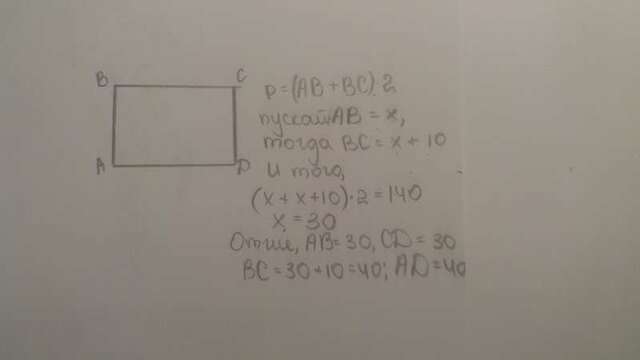 B C
A D
P = (AB + BC) · 2
пускай AB = x,
тогда BC = x + 10
И того,
(x + x + 10) · 2 = 140
x = 30
AB = 30, CD = 30
BC = 30 + 10 = 40; AD = 40